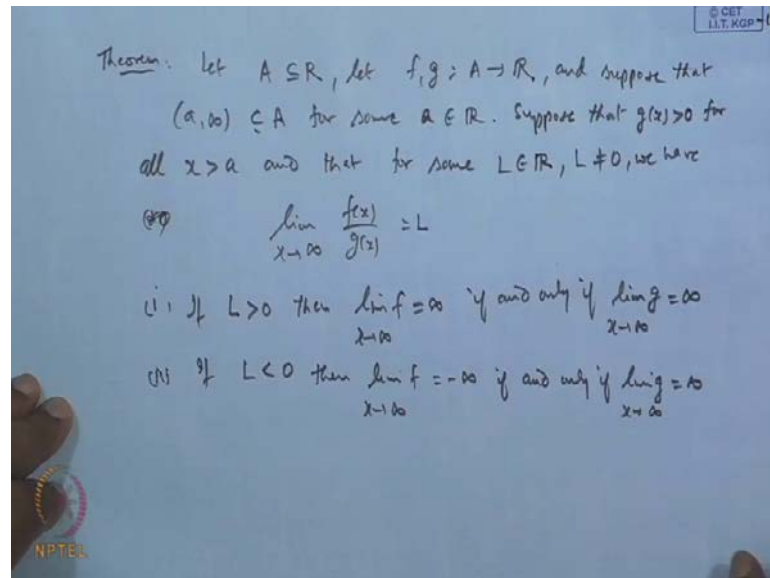 © CET
I.I.T. KGP
Theorem: Let A ⊆ R, let f, g : A → R, and suppose that
(a, ∞) ⊆ A for some a ∈ R. Suppose that g(x) > 0 for
all x > a and that for some L ∈ R, L ≠ 0, we have
lim f(x)/g(x) = L
x→∞
(i) If L > 0 then lim f = ∞ if and only if lim g = ∞
x→∞ x→∞
(ii) If L < 0 then lim f = -∞ if and only if lim g = ∞
x→∞ x→∞
NPTEL